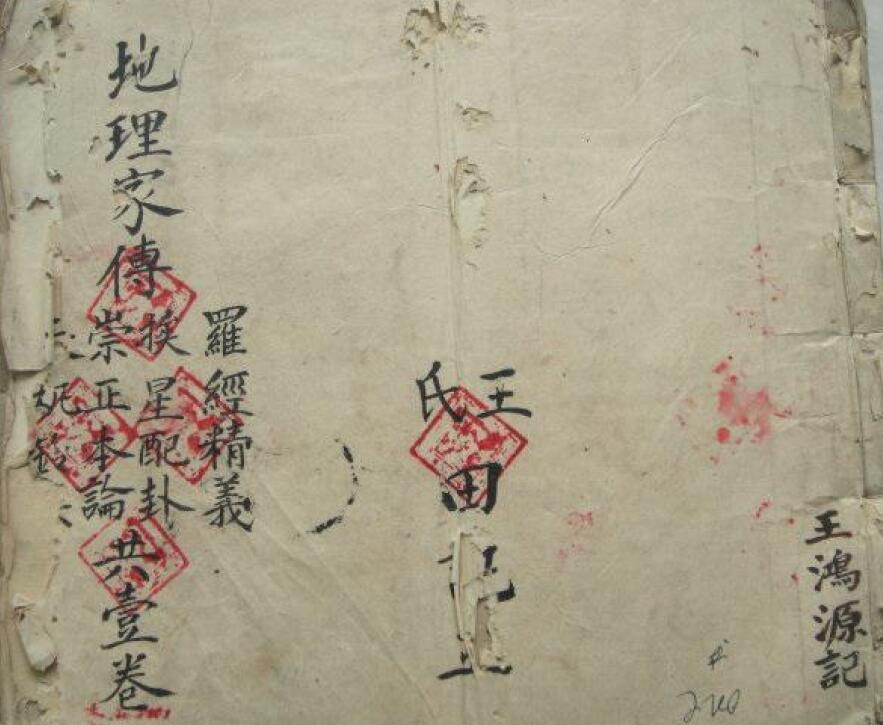 王鴻源記
王氏
田記
地理家傳
羅經精義
挨星配卦
崇正本論
共壹卷